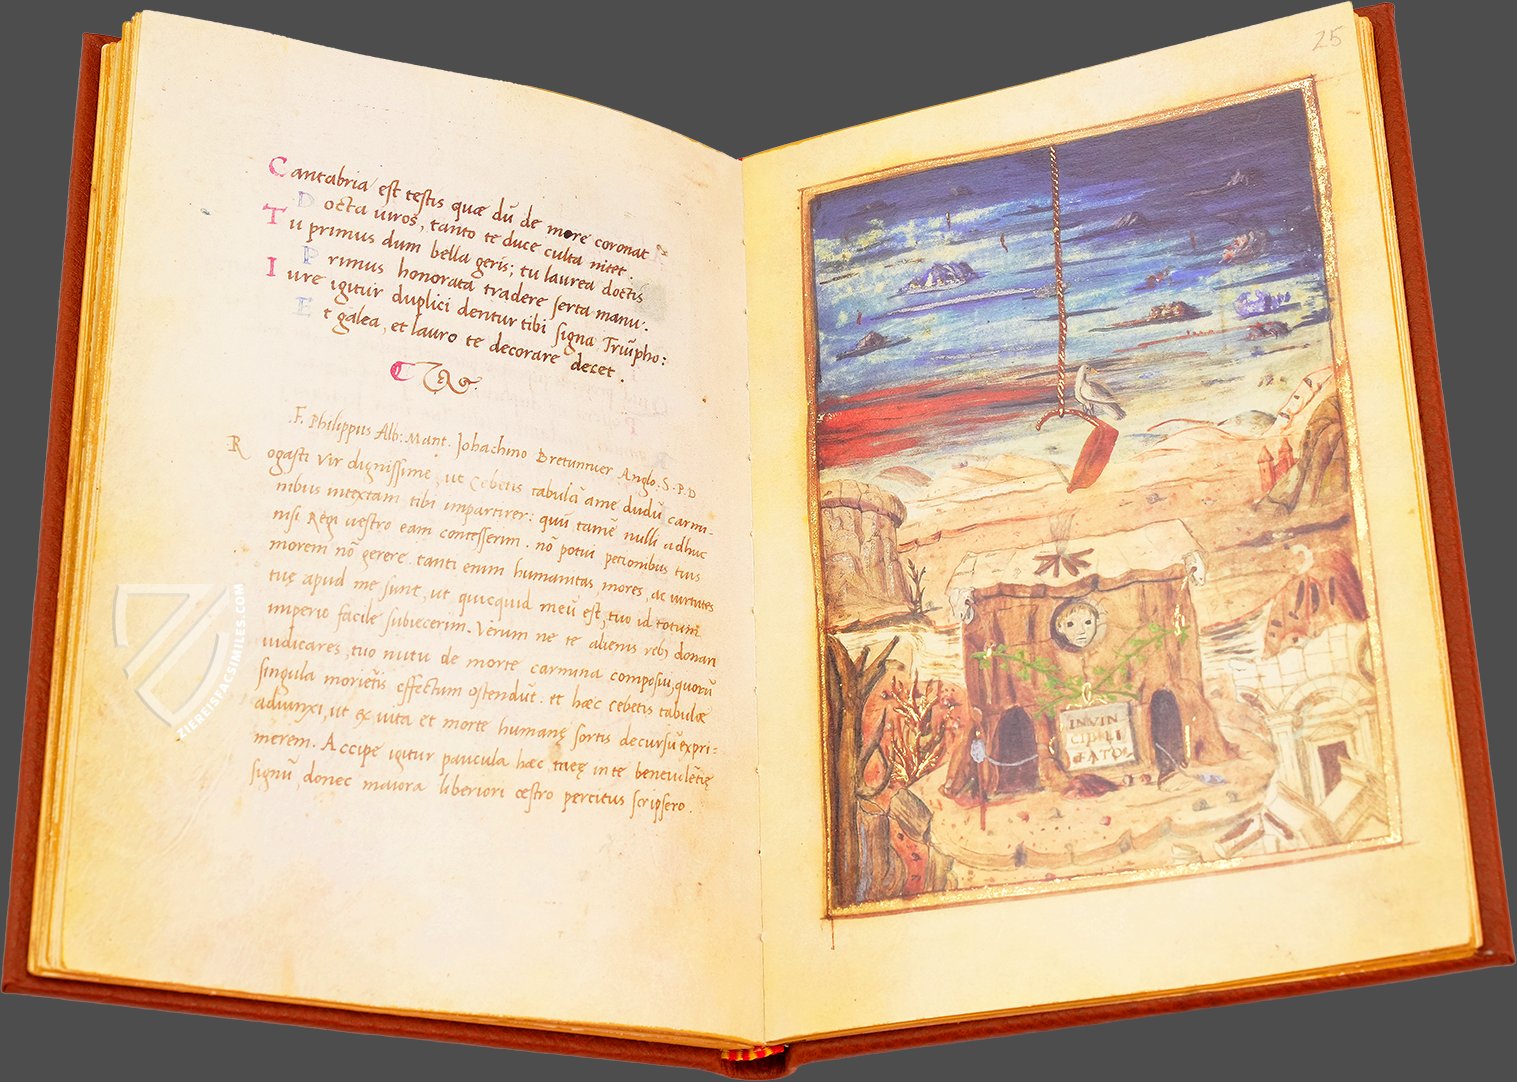 Cantabria est testis quæ dū de more coronat
Docta uiros, tanto te duce culta nitet.
Tu primus dum bella geris; tu laurea doctis
Primus honorata tradere serta manu.
Iure igitur duplici dentur tibi signa Triūpho:
Et galea, et lauro te decorare decet.
F. Philippus Alb: Mant. Johachino Bretunnuer Anglo. S.P.D
Rogasti vir dignissime, ut Cebetis tabulā a me dudū carmi-
nibus intextam tibi impartirer: quū tamē nulli adhuc
nisi Regi uestro eam contesserim. nō potui peticionibus tuis
morem nō gerere. tanti enim humanitas, mores, ac uirtutes
tuę apud me sunt, ut quicquid meū est, tuo id totum
imperio facile subiecerim. Verum ne te alienis reb9 donari
iudicares, tuo nutu de morte carmina composui, quorū
singula morientis effectum ostendūt. et hæc cebetis tabulæ
adiunxi, ut ex uita et morte humanę sortis decursū expri-
merem. Accipe igitur paucula hæc, meę in te beneuolētię
signū, donec maiora liberiori œstro percitus scripsero.
25
INVIN
CIBILI
FATO
ZIEREISFACSIMILES.COM